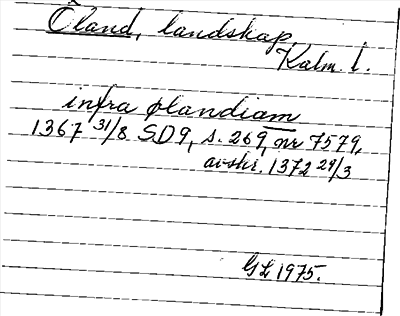 Öland, landskap,
Kalm. l.
infra ølandiam
1367 31/8 SD9, s. 269, nr 7579,
avskr. 1372 29/3
GL 1975.